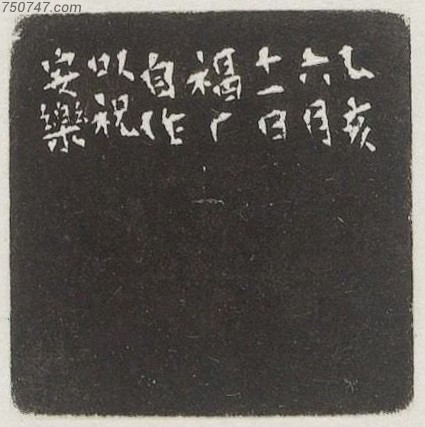 750747.com
乙亥
六月
十一日
福厂
自作
以祝
安樂